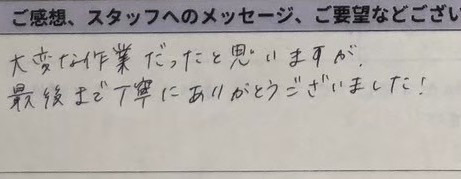 ご感想、スタッフへのメッセージ、ご要望などござい
大変な作業だったと思いますが、
最後まで丁寧にありがとうございました！